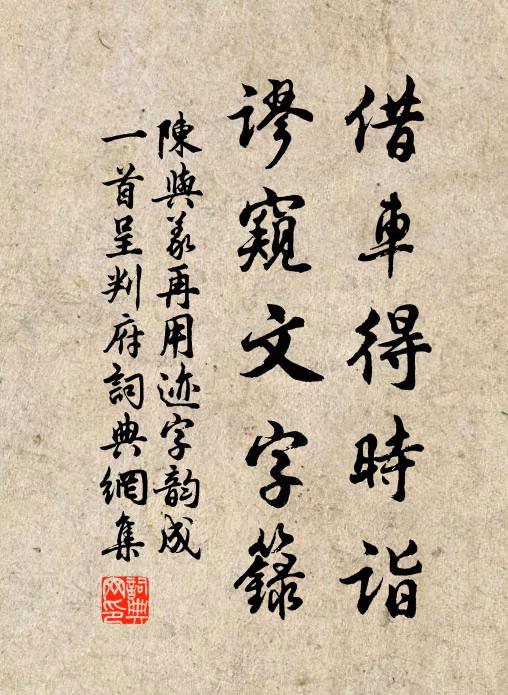 借車得時詣
謬窺文字籙
陳與義再用迹字韵成
一首呈判府詞典網集
詞典網印